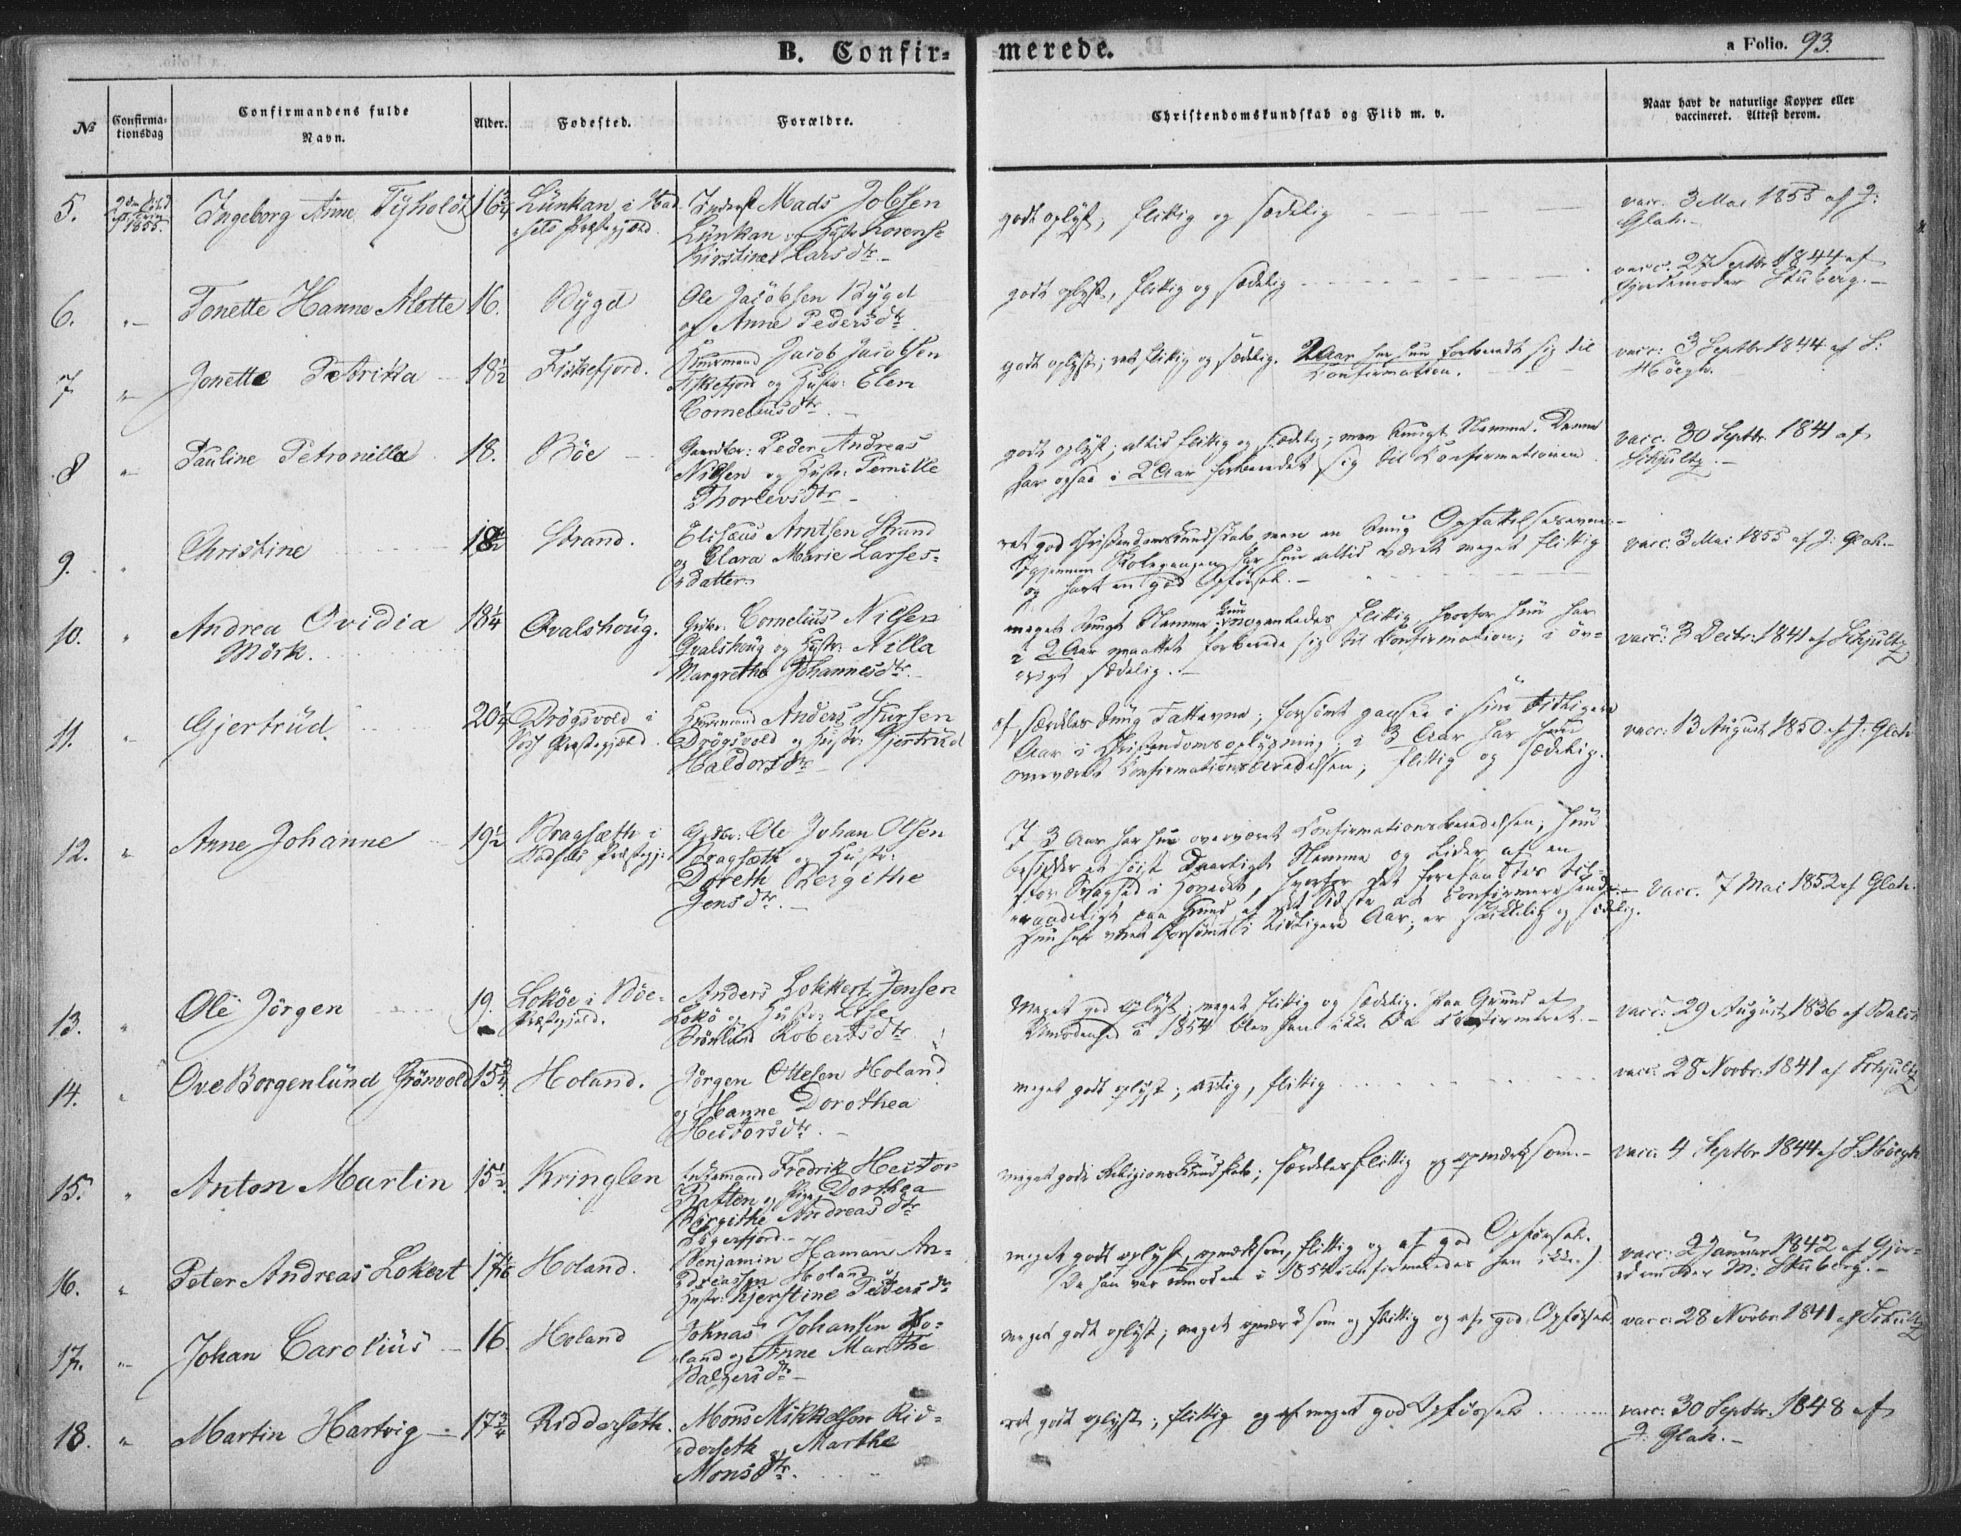 B. Confir-
merede.
a Folio. 93.
No
Confirma-
tionsdag
Confirmandens fulde
Navn.
Alder.
Fødested.
Forældre.
Christendomskundskab og Flid m. v.
Naar havt de naturlige Kopper eller
vaccineret. Attest derom.
5.
1855.
Ingeborg Anne Tyholdt
16 3/4
Lünkan i Had-
sels Præstegjeld.
Mads Jobsen
Lünkan og Hustr Lorense
Kirstine Larsdtr.
godt oplyst, flittig og sædelig
vacc. 3 Mai 1855 af J:
Glah.
6.
"
Tonette Hanne Alette
16.
Bygd
Ole Jacobsen Bygd
og Anne Pedersdtr
godt oplyst, flittig og sædelig
vacc. 27 Septbr 1844 af
Gjordemoder Stuberg.
7.
"
Jonette Petrikka
18 1/2
Fiskefjord.
Huusmand Jacob Jacobsen
Fiskefjord og Hustr: Elen
Corneliusdtr.
godt oplyst; ret flittig og sædelig. 2 Aar har hun forberedt sig til
Confirmation.
vacc: 3 Septbr 1844 af S:
Höegh.
8
"
Pauline Petronilla
18.
Böe
Gaardbr: Peder Andreas
Nilsen og Hustr: Pernille
Thorlevsdtr
godt oplyst; altid flittig og sædelig; men tungt Nemme. Denne
har ogsaa i 2 Aar forberedet sig til Confirmationen
vacc: 30 Septbr. 1841 af
Schjultz.
9.
"
Christine
18 1/2
Strand.
Elisæus Arntsen Strand
og Clara Marie Larses-
datter
ret god Christendomskundskab, men en tung Opfattelsesevne.
Igjennem Skolegangen har hun altid været meget flittig
og havt en god Opførsel.
vacc. 3 Mai 1855 af J: Glah.
10.
"
Andrea Ovidia
Mörk.
18 1/4
Qvalshoug.
Grdbr: Cornelius Nilsen
Qvalshoug og Hustr: Nilla
Margrethe Johannesdtr.
meget tungt Nemme; flittig, hvorfor hun har
i 2 Aar maattet forberede sig til Confirmation; i öv-
rigt sædelig.
vacc: 3 Decbr. 1841 af Schjultz
11.
"
Gjertrüd.
20 1/4
Drögsvold i
Præstegjæld.
Huusmand Anders
Drögsvold og Hustr: Gjertrüd
Haldorsdtr
af særdeles tung Fatteevne; forsömt ganske i sine tidligere
Aar i Christendomsoplysning; i 3 Aar har hun
overværet Confirmationsberedelsen; flittig og sædelig.
vacc: 13 August 1850 af J. Glah
12.
"
Anne Johanne
19 1/2
Bragsæth i
Hadsels Præstegj:
Grdbr: Ole Johan Olsen
Bragsæth og Hustr:
Doreth Bergithe
Jensdtr.
I 3 Aar har hun overværet Confirmationsberedelsen; hun
besidder et höist daarligt Nemme og lider af en
stor Svaghed i Hovedet, hvorfor det forefandtes til-
raadeligt paa Grund af at confirmere hende.
Hun har været forsömt i tidligere Aar; er skikkelig og sædelig.
vacc. 7 Mai 1852 af Glah.
13.
"
Ole Jörgen
19.
Loköe i Böe
Præstegjeld.
Anders Lokkert Jensen
Lokö og Hustr: Else
Brönlund Robertsdtr
Meget god oplyst; meget flittig og sædelig. Paa Grund af
Umodenhed i 1854 blev han ikke da Confirmeret.
vacc: 29 August 1836 af
14.
"
Ove Borgenlünd Grönvold
15 3/4
Holand.
Jörgen Ottesen Holand
og Hanne Dorothea
Hectorsdtr.
meget godt oplyst; artig, flittig
vacc: 28 Novbr. 1841 af Schjultz
15.
"
Anton Martin
15 1/2
Kringlen
Fredrik Hector
og Pige Dorthea
Birgithe Andreasdtr
meget godt Religionskundskab; særdeles flittig og opmærksom.
vacc. 4 Septbr 1844 af S. Höegh
16.
"
Peter Andreas Lokert
Holand.
Benjamin Haman An-
dreassen Holand og
Hustr: Kjerstine Pedersdtr
meget godt oplyst, opmærksom, flittig og af god Opförsel.
(Da han var umoden i 1854 confirmeredes han ikke.)
vacc: 2 Januar 1842 af Gjor-
demoder M: Stuberg.
17.
"
Johan Carolius
16.
Holand
Johnas Johansen Ho-
land og Anne Marthe
Balzersdtr
meget godt oplyst; meget opmærksom og flittig og af god Opförsel
vacc: 28 Novbr. 1841 af Schultz
18.
"
Martin Hartvig
17 3/4
Ridderseth.
Mons Mikkelsen Rid-
derseth og Marthe
Monsdtr.
ret godt oplyst; flittig og af meget god Opförsel
vacc: 30 Septbr. 1848 af
J: Glah.